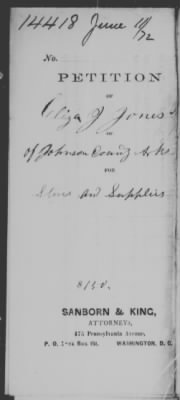 14418 June 10/72
No.
PETITION
OF
Eliza J Jones
OF
of Johnson County Arks
FOR
Stores and Supplies
SANBORN & KING,
ATTORNEYS,
475 Pennsylvania Avenue,
P. O. Box WASHINGTON, D. C.